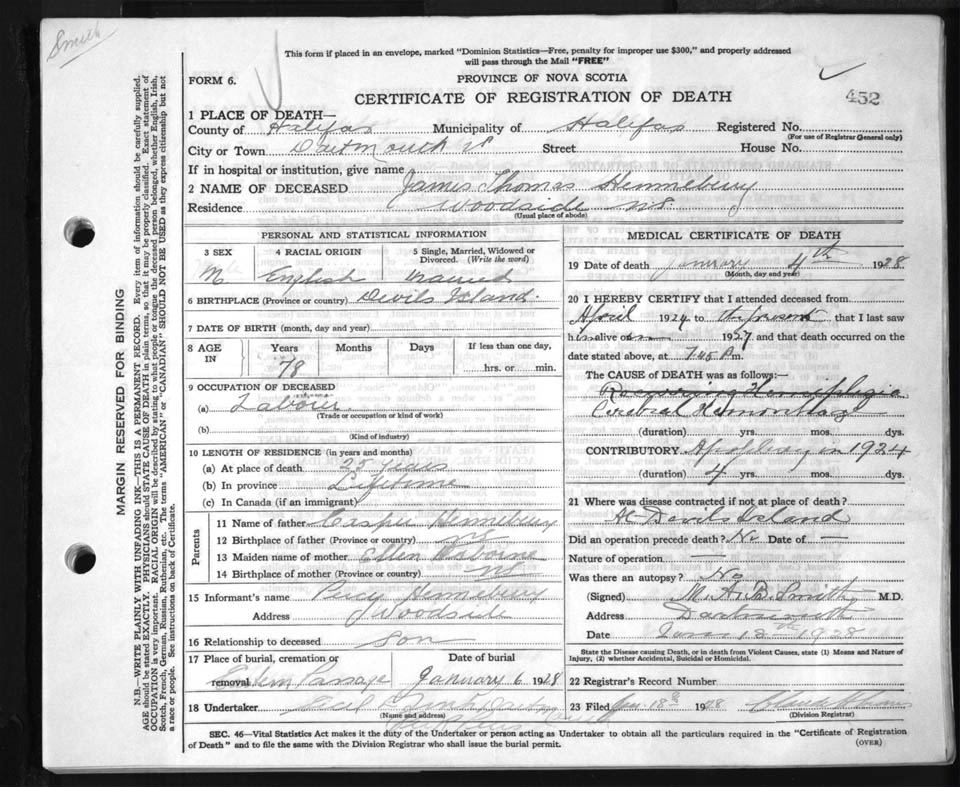 Smith
This form if placed in an envelope, marked "Dominion Statistics—Free, penalty for improper use $300," and properly addressed
will pass through the Mail "FREE"
FORM 6.
PROVINCE OF NOVA SCOTIA
CERTIFICATE OF REGISTRATION OF DEATH
452
1 PLACE OF DEATH—
County of Halifax Municipality of Halifax Registered No.
(For use of Registrar General only)
City or Town Dartmouth Street House No.
If in hospital or institution, give name
2 NAME OF DECEASED James Thomas Henneberry
Residence Woodside NS
(Usual place of abode)
PERSONAL AND STATISTICAL INFORMATION
3 SEX 4 RACIAL ORIGIN 5 Single, Married, Widowed or Divorced. (Write the word)
Male English Married
6 BIRTHPLACE (Province or country) Devils Island
7 DATE OF BIRTH (month, day and year)
8 AGE IN Years Months Days If less than one day,
78 hrs. or min.
9 OCCUPATION OF DECEASED
(a) Labourer
(Trade or occupation or kind of work)
(b)
(Kind of industry)
10 LENGTH OF RESIDENCE (in years and months)
(a) At place of death 25 years
(b) In province Lifetime
(c) In Canada (if an immigrant)
Parents
11 Name of father Casper Henneberry
12 Birthplace of father (Province or country) NS
13 Maiden name of mother Ellen Osborne
14 Birthplace of mother (Province or country) NS
15 Informant's name Percy Henneberry
Address Woodside
16 Relationship to deceased Son
17 Place of burial, cremation or removal Date of burial
Eastern Passage January 6 1928
18 Undertaker
(Name and address)
MEDICAL CERTIFICATE OF DEATH
19 Date of death January 4th 1928
(Month, day and year)
20 I HEREBY CERTIFY that I attended deceased from
April 1924 to the present that I last saw
him alive on 1927 and that death occurred on the
date stated above, at 7.45 P.m.
The CAUSE OF DEATH was as follows:—
Recurring Hemiplegia
Cerebral Hemorrhage
(duration) yrs. mos. dys.
CONTRIBUTORY Apoplexy in 1924
(duration) 4 yrs. mos. dys.
21 Where was disease contracted if not at place of death?
At Devils Island
Did an operation precede death? No Date of —
Nature of operation —
Was there an autopsy? No
(Signed) M.A.B. Smith M.D.
Address Dartmouth
Date 1928
State the Disease causing Death, or in death from Violent Causes, state (1) Means and Nature of
Injury, (2) whether Accidental, Suicidal or Homicidal.
22 Registrar's Record Number
23 Filed Jan. 18th 1928
(Division Registrar)
SEC. 46—Vital Statistics Act makes it the duty of the Undertaker or person acting as Undertaker to obtain all the particulars required in the "Certificate of Registration
of Death" and to file the same with the Division Registrar who shall issue the burial permit.
(OVER)
MARGIN RESERVED FOR BINDING
N.B.—WRITE PLAINLY WITH UNFADING INK—THIS IS A PERMANENT RECORD. Every item of information should be carefully supplied.
AGE should be stated EXACTLY. PHYSICIANS should STATE CAUSE OF DEATH in plain terms, so that it may be properly classified. Exact statement of
OCCUPATION is very important. RACIAL ORIGIN will be described by stating to what people or tongue the deceased person belonged, whether English, Irish,
Scotch, French, German, Russian, Ruthenian, etc. The terms "AMERICAN" or "CANADIAN" SHOULD NOT BE USED as they express citizenship but not
a race or people. See instructions on back of Certificate.